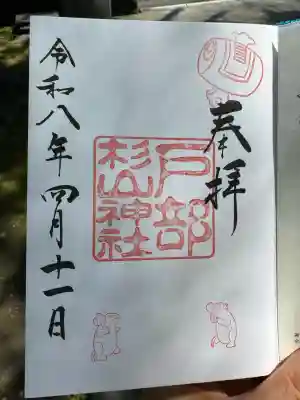 奉拝
戸部
杉山神社
令和八年四月十一日